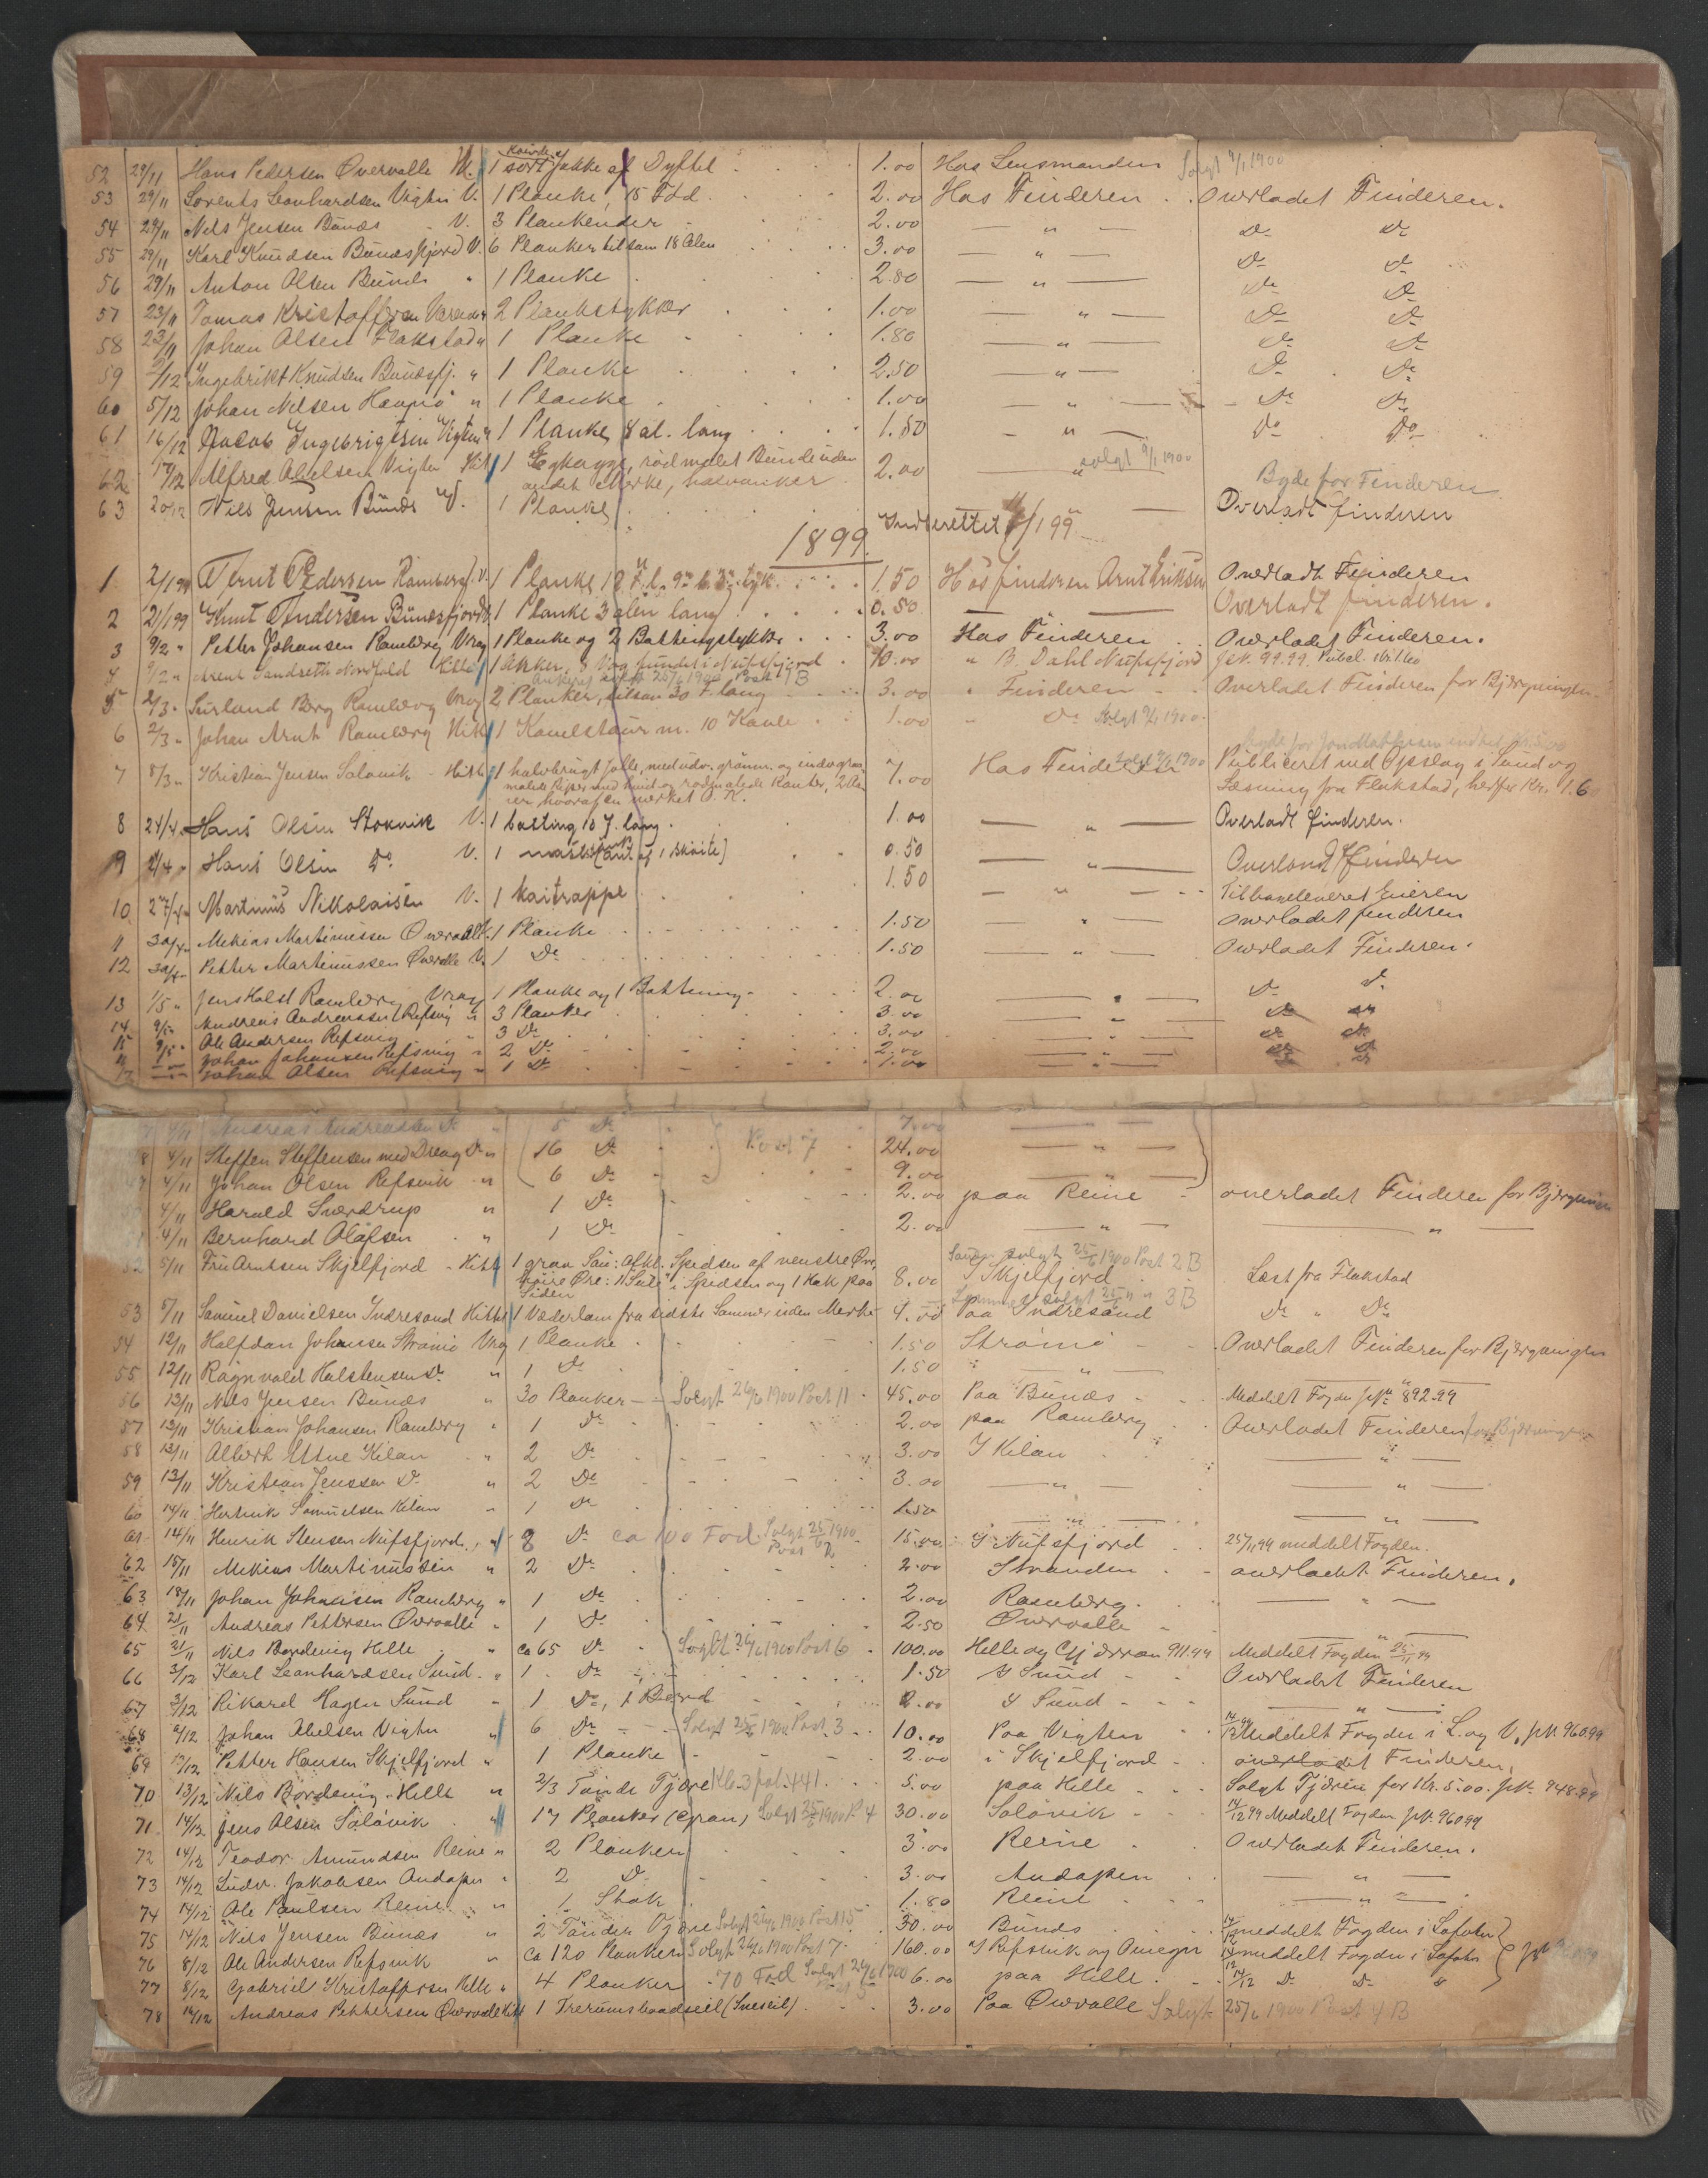 52 29/11 Hans Pedersen Overvolle 1 sort Jakke af Dyffel 1.00 Hos Lensmanden Solgt 9/1 1900
53 29/11 Lorents Leonhardsen Vigten V. 1 Planke, 15 Fod 2.00 Hos Finderen Overladet Finderen.
54 29/11 Nils Jensen Bunæs V. 3 Plankender 2.00 — " — Do Do
55 29/11 Karl Knudsen Bunæsfjord V. 6 Planker tilsam 18 Alen 3.00 — " — Do Do
56 29/11 Anton Olsen Bunæs " 1 Planke 2.80 — " — Do Do
57 23/11 Tomas Kristoffersen 2 Plankstykker 1.00 — " — Do Do
58 23/11 Johan Olsen Flakstad " 1 Planke 1.80 — " — Do Do
59 /12 Ingebrikt Knudsen Bunæsfj. " 1 Planke 2.50 — " — Do Do
60 5/12 Johan Nilsen " 1 Planke 1.00 — " — Do Do
61 16/12 Jacob Ingebrigtsen Vigten " 1 Planke 8 al. lang 1.50 — " — Do Do
62 17/12 Alfred Abelsen Vigten Hit 1 Egkagge, rød malet Bunde uden
andet Merke, halvanker 2.00 — " — solgt 9/1 1900 Byde for Finderen
63 20/12 Nils Jensen Bunæs V. 1 Planke — Overladt finderen
1899 Indberettet /1 99
1 2/1 99 Arnt Pedersen Ramberg V. 1 Planke, 18 F. l. 9" b. 3" tyk 1.50 Hos finderen Arnt Eriksen Overladt Finderen
2 21/1 99 Knut Andersen Bunæsfjord 1 Planke 3 alen lang 0.50 — — Overladt finderen.
3 9/2 " Petter Johansen Ramberg Vrag 1 Planke og 2 Battingstykker 3.00 Hos Finderen Overladet Finderen.
4 9/2 " Arent Sandseth Nordfold Hitte 1 Anker, 3 Vog fundet i Nufsfjord 10.00 " B. Dahl Nufsfjord Jk. 99.99. Publ.
Ankeret solgt 25/6 1900 Post 1 B
5 2/3 " Sivland Berg Ramberg Vrag 2 Planker, tilsam 30 F. lang 3.00 " Finderen Overladet Finderen for Bjergningen
6 2/3 " Johan Arnt Ramberg Hitte 1 Kavelstaur m. 10 Kavle 1.00 " Do Solgt 9/1 1900
7 8/3 " Kristian Jensen Soløvik - Hitte 1 halvbrugt Jolle, med udv. grønm. og indv. grøn
malede Riper med hvid og rødmalede Kanter, 2 Aar
er, hvoraf en merket O. K. 7.00 Hos Finderen Solgt 9/1 1900 Publiceret ved Opslag i Sund og
Læsning fra Flakstad, herfor Kr. 1.60
8 24/4 Hans Olsen Stokvik V. 1 batting 10 f. lang 1.00 — " — Overladt finderen.
9 2/4 " Hans Olsen Do. V. 1 0.50 — " — Overladt finderen
10 27/4 " Martinus Nikolaisen V. 1 kaitrappe 1.50 — " — Tilbageleveret Eieren
11 30/4 " Mekias Martinussen Overvolle V. 1 Planke 1.50 — " — Overladet finderen
12 30/4 " Petter Martinussen Overvolle V. 1 Do 1.50 — " — Overladet Finderen.
13 1/5 " Jens Holst Ramberg Vrag 1 Planke og 1 Batting 2.00 — " — Do Do
14 9/5 " Andreas Andreassen Refsvig " 3 Planker 3.00 — " — Do Do
15 9/5 " Ole Andersen Refsvig " 3 Do 3.00 — " — Do Do
16 — " — Johan Johansen Refsvig " 2 Do 2.00 — " — Do Do
17 — " — Johan Olsen Refsvig " 1 Do 1.00 — " — Do Do
4/11 Andreas Andreassen Do " 5 Do 7.00 — " —
8 4/11 Steffen Steffensen med Dreng Do " 16 Do Post 7 24.00 — " —
4/11 Johan Olsen Refsvik " 6 Do 9.00 — " —
4/11 Harald Sverdrup " 1 Do 2.00 paa Reine overladet Finderen for Bjergningen
4/11 Bernhard Olafsen " 1 Do 2.00 — " — — " —
52 5/11 Fru Arntsen Skjelfjord - Hitte 1 graa Sau: Afkl. Spidsen af venstre Øre,
høire Øre: 1 i Spidsen og 1 Hak paa
Siden 8.00 Sauen solgt 25/6 1900 Post 2 B
I Skjelfjord Læst fra Flakstad
53 5/11 Samuel Danielsen Yndresand Hitte 1 Væderlam fra sidste Sommer uden Merke 4.00 Lammet solgt 25/6 " " 3 B
Paa Yndresand Do " Do
54 12/11 Halfdan Johansen Strømø Vrag 1 Planke 1.50 Strømø Overladet Finderen for Bjergningen
55 12/11 Ragnvald Halstensen Do " 1 Do 1.50 " — " — — " —
56 13/11 Nils Jensen Bunæs " 30 Planker — Solgt 26/6 1900 Post 11 45.00 Paa Bunæs Meddelt Fogden jk. 892.99
57 13/11 Kristian Johansen Ramberg " 1 Do 2.00 paa Ramberg Overladet Finderen for Bjergningen
58 13/11 Albert Utne Kilan " 2 Do 3.00 I Kilan — " —
59 13/11 Kristian Jenssen Do " 2 Do 3.00 — " — — " —
60 14/11 Henrik Samuelsen Kilan " 1 Do 1.50 — " — — " —
61 14/11 Henrik Stensen Nufsfjord " 8 Do ca 100 Fod Solgt 25/6 1900 Post 2 15.00 I Nufsfjord 25/11 99 meddelt Fogden.
62 15/11 Mekias Martinussen " 2 Do 2.00 Stranden overladt Finderen.
63 18/11 Johan Johansen Ramberg " 1 Do 2.00 Ramberg — " —
64 21/11 Andreas Pettersen Overvolle " 1 Do 2.50 Overvolle — " —
65 21/11 Nils Bordevig Helle " ca 65 Do Solgt 26/6 1900 Post 6 100.00 Helle og 911.99 Meddelt Fogden 25/11 99
66 3/12 Karl Leonhardsen Sund " 1 Do 1.50 I Sund Overladet Finderen
67 3/12 Rikard Hagen Sund " 1 Do, 1 Bord 2.00 I Sund — " —
68 6/12 Johan Abelsen Vigten " 6 Do Solgt 25/6 1900 Post 3 10.00 Paa Vigten 14/12 99 Meddelt Fogden i L. og V. jk. 960.99
69 17/12 Petter Hansen Skjelfjord " 1 Planke 2.00 i Skjelfjord overladet Finderen,
70 13/12 Nils Bordevig - Helle " 2/3 Tønde Tjære Kb. 3 fol. 441 5.00 paa Helle Solgt Tjæren for Kr. 5.00. jk. 948.99
71 14/12 Jens Olsen Soløvik " 17 Planker (gran) Solgt 25/6 1900 P 4 30.00 Soløvik 14/12 99 Meddelt Fogden jk. 960 99
72 14/12 Teodor Amundsen Reine " 2 Planker 3.00 Reine Overladet Finderen.
73 14/12 Ludv. Jakobsen Andopen " 2 Do 3.00 Andopen — " —
74 14/12 Ole Paulsen Reine " 1 Stok 1.80 Reine — " —
75 14/12 Nils Jensen Bunæs " 2 Tønder Tjære Solgt 26/6 1900 Post 15 30.00 Bunæs 14/12 meddelt Fogden i Lofoten
76 8/12 Ole Andersen Refsvik " ca 120 Planker Solgt 26/6 1900 Post 7 160.00 I Refsvik og Omegn 14/12 meddelt Fogden i Lofoten
77 8/12 Gabriel Kristoffersen Helle " 4 Planker - 70 Fod Solgt 26/6 1900 Post 5 6.00 paa Helle 14/12 Do Do
78 14/12 Andreas Pettersen Overvolle Hitt 1 Trerumsbaadseil (Sneseil) 3.00 Paa Overvolle Solgt 25/6 1900 Post 4 B